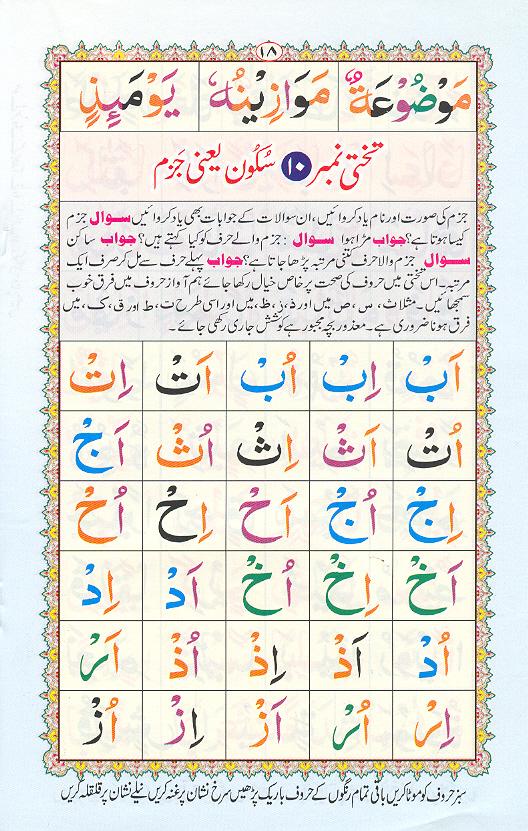 ۱۸
مَوْضُوْعَةٌ مَوَازِيْنُهٗ يَوْمَئِذٍ
تختی نمبر ۱۰ سُکُون یعنی جَزم
جزم کی صورت اور نام یاد کروائیں، ان سوالات کے جوابات بھی یاد کروائیں سوال جزم
کیسا ہوتا ہے؟ جواب مڑا ہوا سوال : جزم والے حرف کو کیا کہتے ہیں؟ جواب ساکن
سوال جزم والا حرف کتنی مرتبہ پڑھا جاتا ہے؟ جواب پہلے حرف سے مل کر صرف ایک
مرتبہ۔ اس تختی میں حروف کی صحت پر خاص خیال رکھا جائے ہم آواز حروف میں فرق خوب
سمجھائیں۔ مثلاً ث، س، ص میں اور ذ، ز، ظ، میں اور اسی طرح ت، ط اور ق، ک، میں
فرق ہونا ضروری ہے۔ معذور بچہ مجبور ہے کوشش جاری رکھی جائے۔
اَبْ اِبْ اُبْ اَتْ اِتْ
اُتْ اَثْ اِثْ اُثْ اَجْ
اِجْ اُجْ اَحْ اِحْ اُحْ
اَخْ اِخْ اُخْ اَدْ اِدْ
اُدْ اَذْ اِذْ اُذْ اَرْ
اِرْ اُرْ اَزْ اِزْ اُزْ
سبز حروف کو موٹا کریں باقی تمام رنگوں کے حروف باریک پڑھیں سرخ نشان پر غنہ کریں نیلے نشان پر قلقلہ کریں